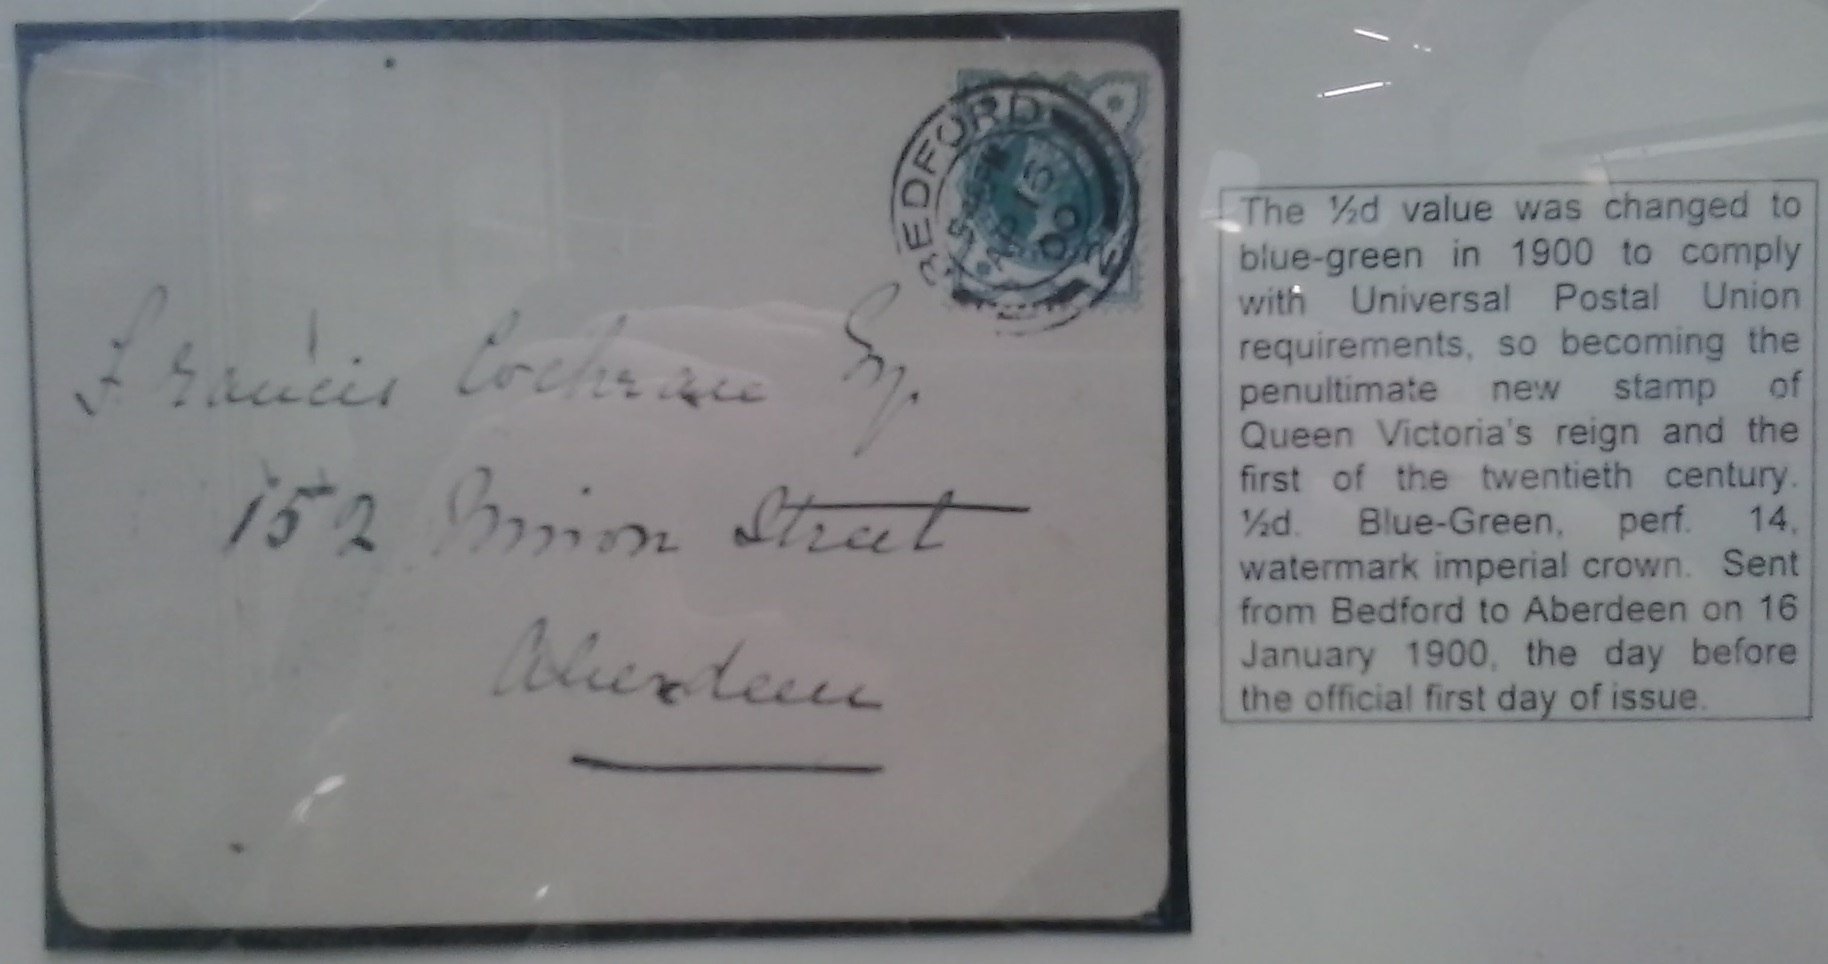 BEDFORD
Francis Cochrane Esq.
152 Union Street
Aberdeen
The ½d value was changed to
blue-green in 1900 to comply
with Universal Postal Union
requirements, so becoming the
penultimate new stamp of
Queen Victoria's reign and the
first of the twentieth century.
½d. Blue-Green, perf. 14,
watermark imperial crown. Sent
from Bedford to Aberdeen on 16
January 1900, the day before
the official first day of issue.